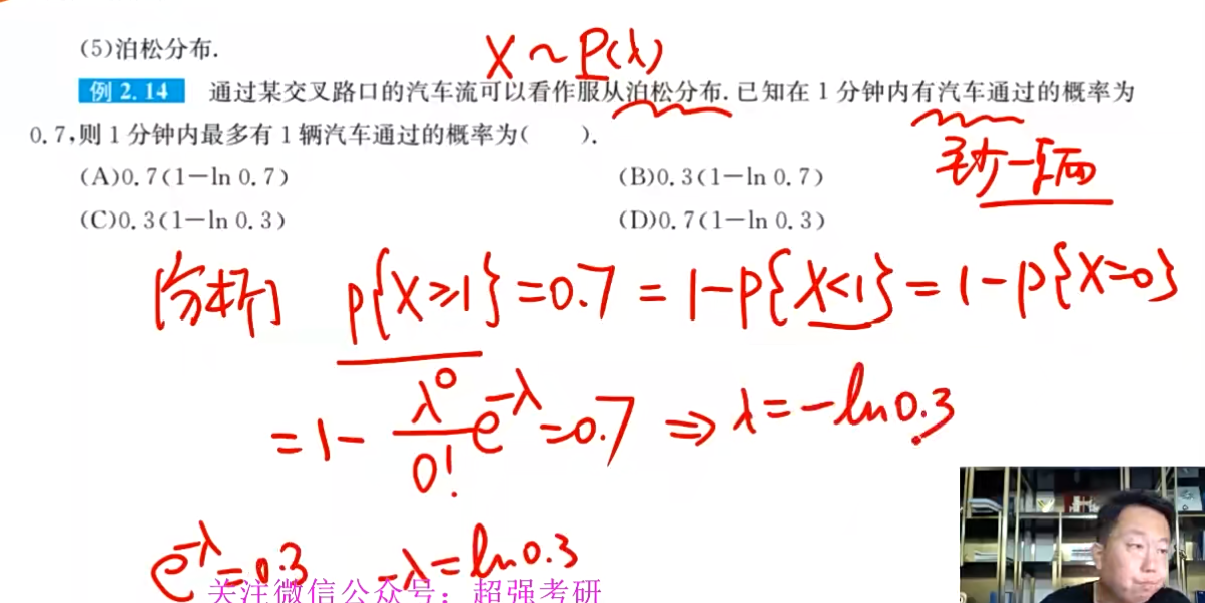 (5)泊松分布.
X~P(λ)
例 2.14 通过某交叉路口的汽车流可以看作服从泊松分布.已知在 1 分钟内有汽车通过的概率为
0.7,则 1 分钟内最多有 1 辆汽车通过的概率为( ).
至少一辆
(A)0.7(1-ln 0.7) (B)0.3(1-ln 0.7)
(C)0.3(1-ln 0.3) (D)0.7(1-ln 0.3)
[分析] P{X≥1}=0.7=1-P{X<1}=1-P{X=0}
=1-λ^0/0! e^-λ=0.7 ⇒ λ=-ln0.3
e^-λ=0.3 -λ=ln0.3
关注微信公众号：超强考研